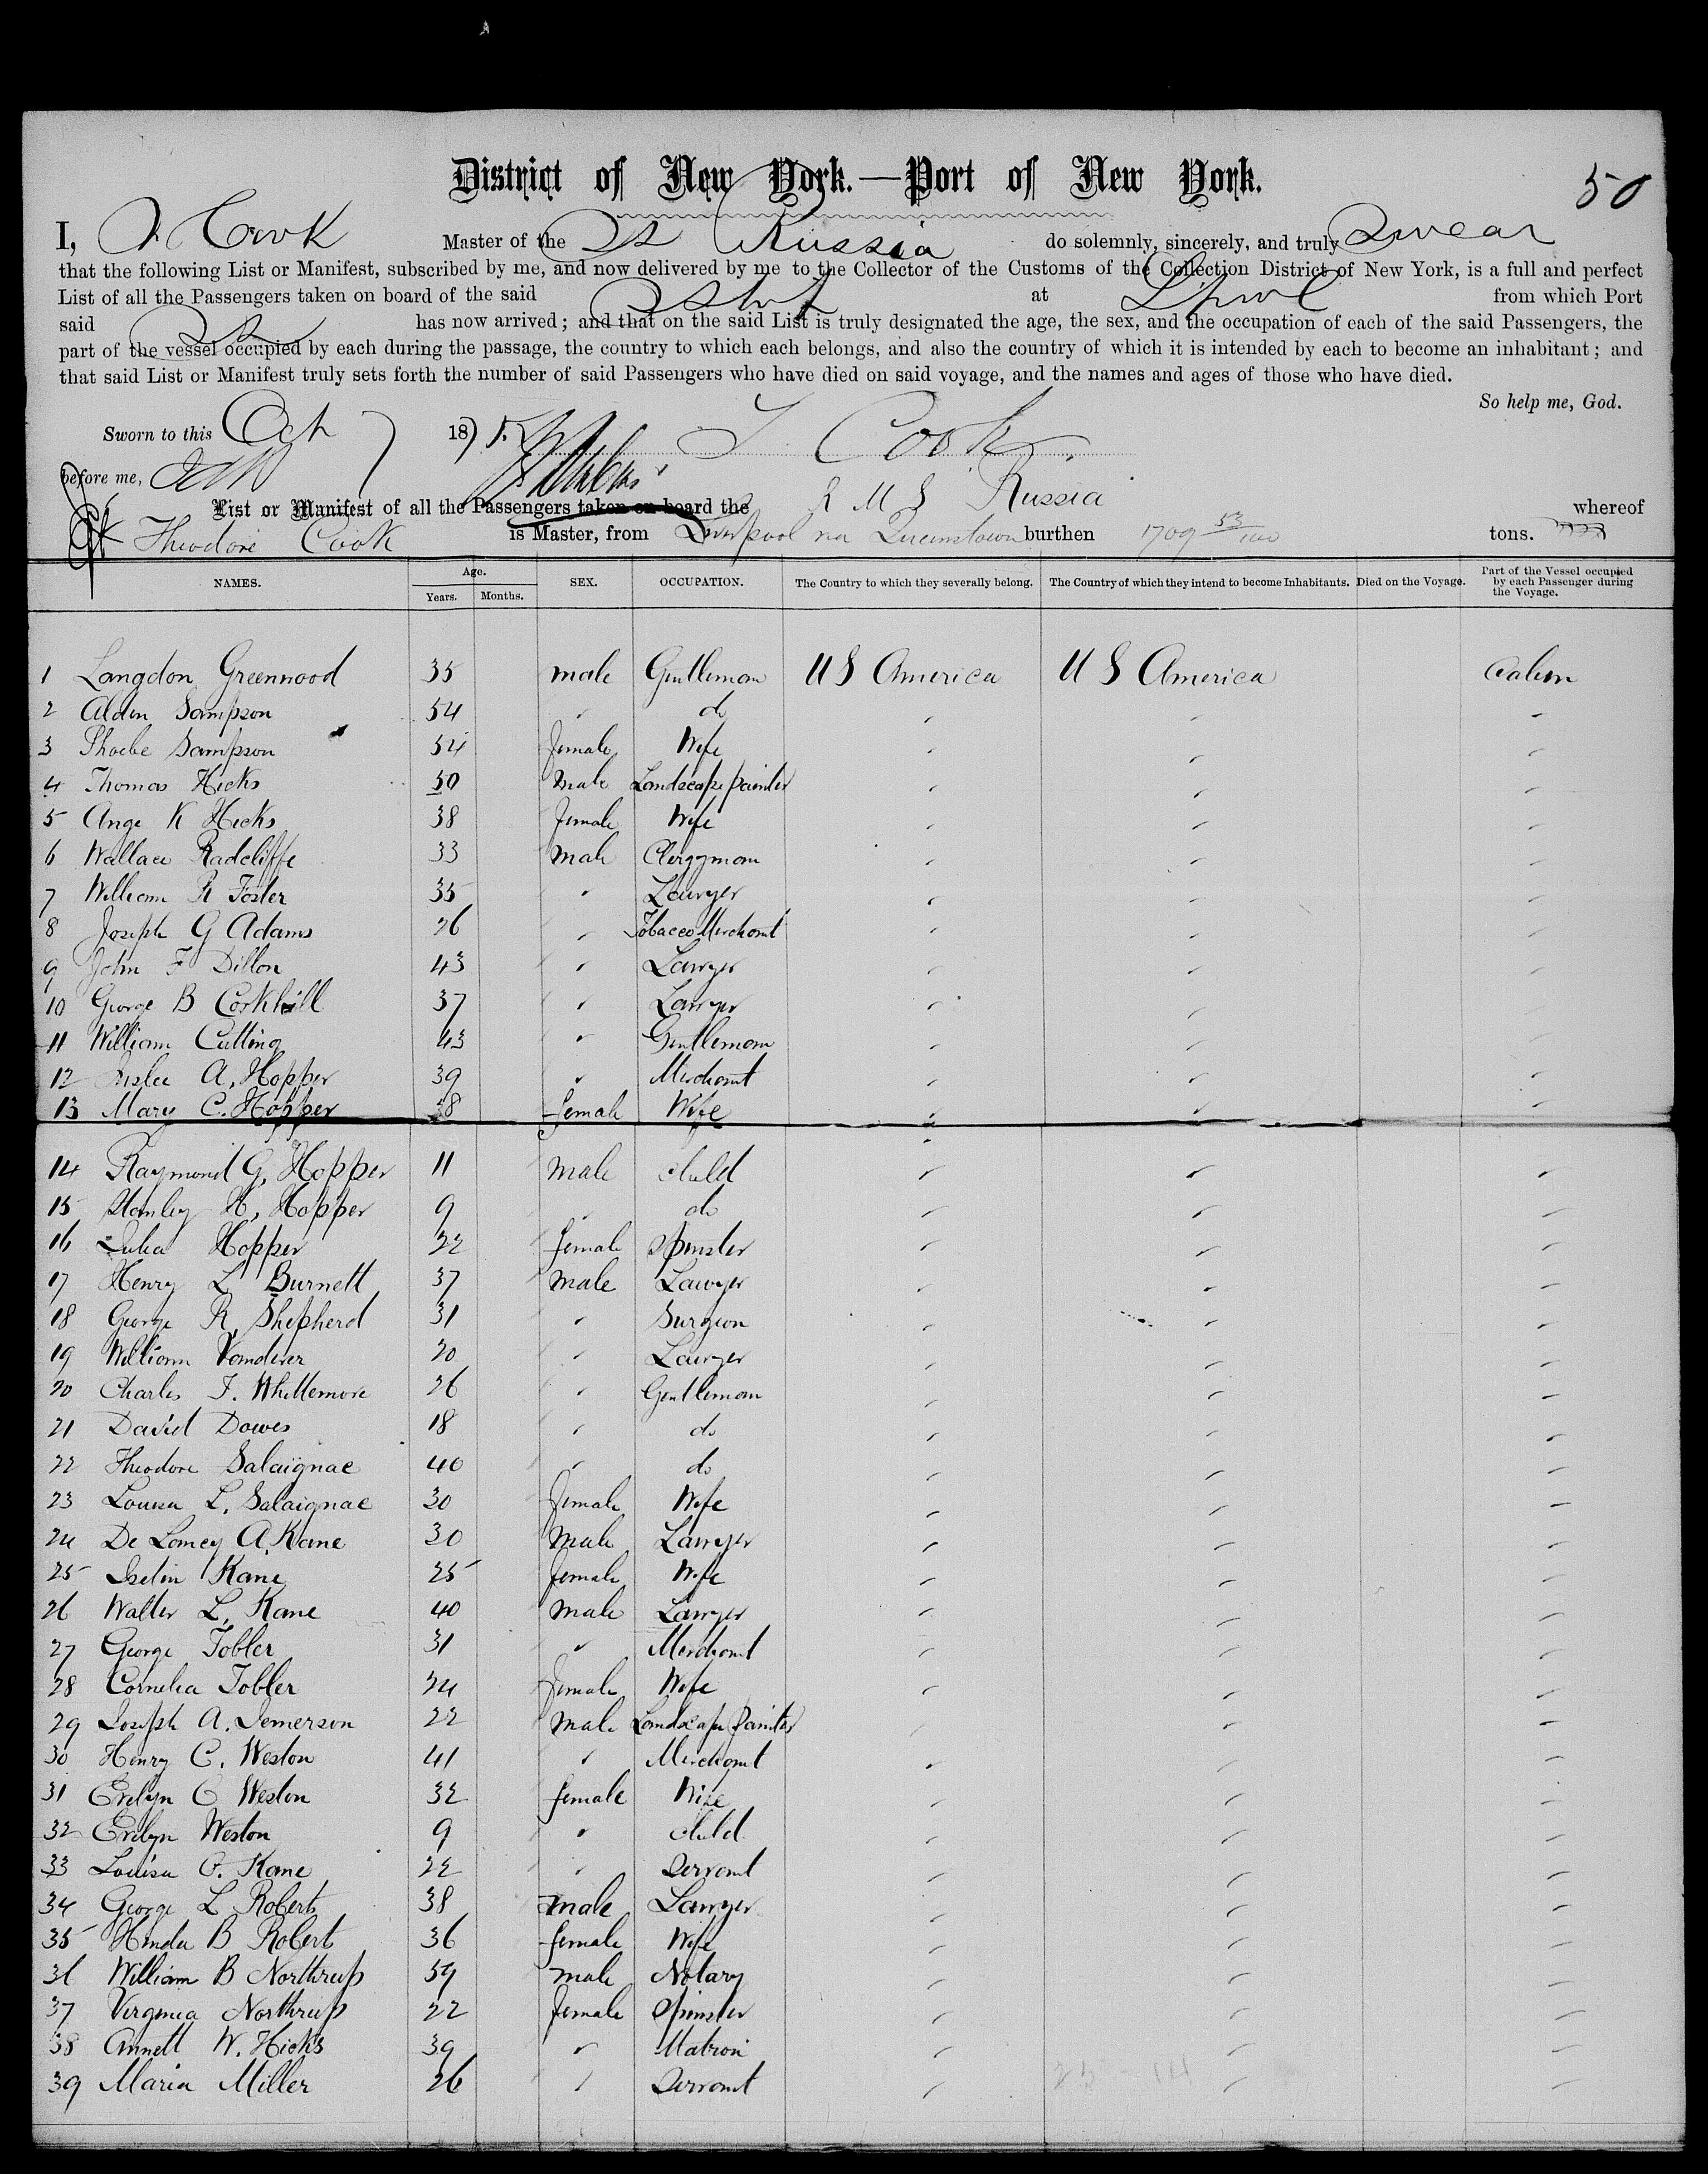 District of New York.—Port of New York.
50
I, T Cook Master of the SS Russia do solemnly, sincerely, and truly Swear
that the following List or Manifest, subscribed by me, and now delivered by me to the Collector of the Customs of the Collection District of New York, is a full and perfect
List of all the Passengers taken on board of the said at L'pool from which Port
said SS has now arrived; and that on the said List is truly designated the age, the sex, and the occupation of each of the said Passengers, the
part of the vessel occupied by each during the passage, the country to which each belongs, and also the country of which it is intended by each to become an inhabitant; and
that said List or Manifest truly sets forth the number of said Passengers who have died on said voyage, and the names and ages of those who have died.
So help me, God.
Sworn to this Oct 187 T Cook
before me,
List or Manifest of all the Passengers taken on board the R M S Russia whereof
Theodore Cook is Master, from Liverpool via Queenstown burthen 1709 53/100 tons.
NAMES. Age. Years. Months. SEX. OCCUPATION. The Country to which they severally belong. The Country of which they intend to become Inhabitants. Died on the Voyage. Part of the Vessel occupied by each Passenger during the Voyage.
1 Langdon Greenwood 35 male Gentleman U S America U S America Cabin
2 Alden Sampson 54 " do " " "
3 Phoebe Sampson 54 female Wife " " "
4 Thomas Hicks 50 male Landscape painter " " "
5 Ange K Hicks 38 female Wife " " "
6 Wallace Radcliffe 33 male Clergyman " " "
7 William R Foster 35 " Lawyer " " "
8 Joseph G Adams 26 " Tobacco Merchant " " "
9 John F Dillon 43 " Lawyer " " "
10 George B Corkhill 37 " Lawyer " " "
11 William Cutting 43 " Gentleman " " "
12 A. Hopper 39 " Merchant " " "
13 Mary C. Hopper 38 female Wife " " "
14 Raymond G, Hopper 11 male child " " "
15 Stanley H, Hopper 9 " do " " "
16 Julia Hopper 22 female Spinster " " "
17 Henry L Burnett 37 male Lawyer " " "
18 George R, Shepherd 31 " Surgeon " " "
19 William 20 " Lawyer " " "
20 Charles J. Whittemore 26 " Gentleman " " "
21 David Dowes 18 " do " " "
22 Theodore Salaignac 40 " do " " "
23 Louisa L, Salaignac 30 female Wife " " "
24 De Lancey A. Kane 30 male Lawyer " " "
25 Iselin Kane 25 female Wife " " "
26 Walter L, Kane 40 male Lawyer " " "
27 George Tobler 31 " Merchant " " "
28 Cornelia Tobler 24 female Wife " " "
29 Joseph A. Jemerson 22 male Landscape Painter " " "
30 Henry C. Weston 41 " Merchant " " "
31 Evelyn C Weston 32 female Wife " " "
32 Evelyn Weston 9 " child " " "
33 Louisa O. Kane 22 " Servant " " "
34 George L Roberts 38 male Lawyer " " "
35 Hinda B Roberts 36 female Wife " " "
36 William B Northrup 59 male Notary " " "
37 Virginia Northrup 22 female Spinster " " "
38 Annett W. Hicks 39 " Matron " " "
39 Maria Miller 26 " Servant " " "